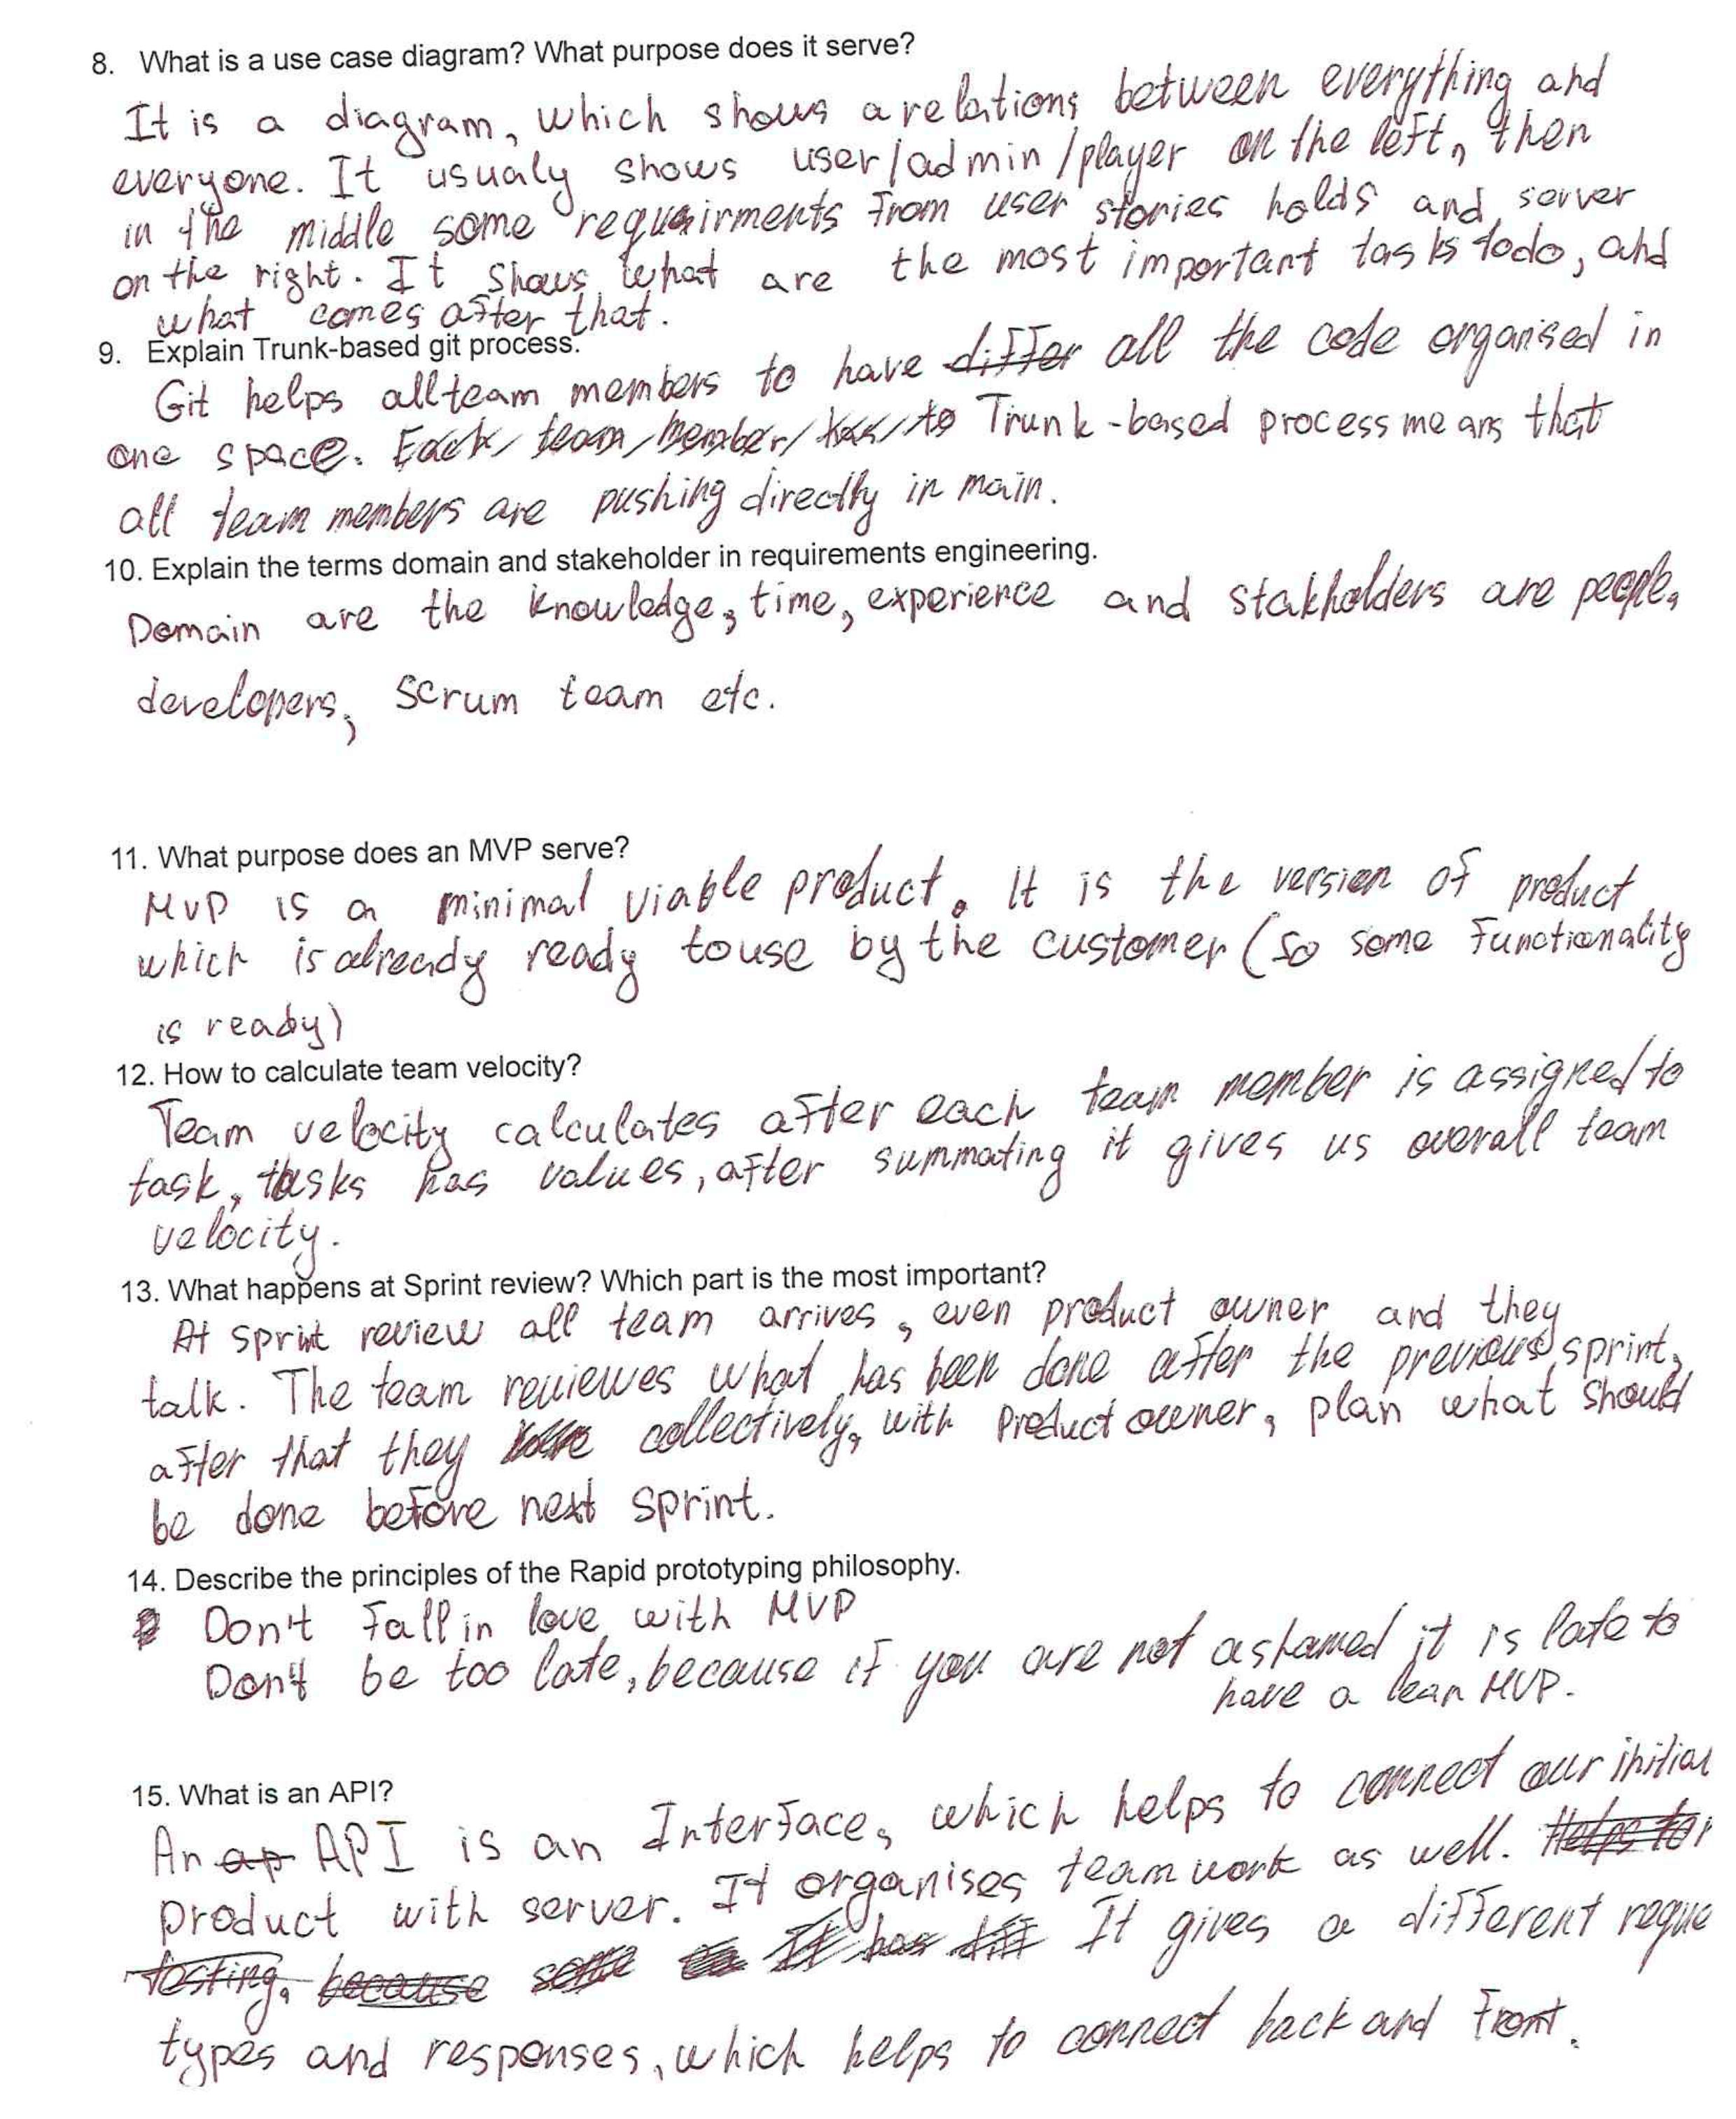 8. What is a use case diagram? What purpose does it serve?
It is a diagram, which shows a relations between everything and
everyone. It usualy shows user/admin/player on the left, then
in the middle some requirments from user stories holds and server
on the right. It shows what are the most important tasks todo, and
what comes after that.
9. Explain Trunk-based git process.
Git helps all team members to have differ all the code organised in
one space. Each team member has to Trunk-based process means that
all team members are pushing directly in main.
10. Explain the terms domain and stakeholder in requirements engineering.
Domain are the knowledge, time, experience and stakholders are people,
developers, scrum team etc.
11. What purpose does an MVP serve?
MVP is a minimal viable product. It is the version of product
which is already ready to use by the customer (so some functionality
is ready)
12. How to calculate team velocity?
Team velocity calculates after each team member is assigned to
task, tasks has values, after summating it gives us overall team
velocity.
13. What happens at Sprint review? Which part is the most important?
At sprint review all team arrives, even product owner and they
talk. The team reviewes what has been done after the previous sprint,
after that they collectively, with Product owner, plan what should
be done before next sprint.
14. Describe the principles of the Rapid prototyping philosophy.
Don't fall in love with MVP
Don't be too late, because if you are not ashamed it is late to
have a lean MVP.
15. What is an API?
An ap API is an Interface, which helps to connect our initial
product with server. It organises team work as well. Helps for
testing, because some It has diff It gives a different reque
types and responses, which helps to connect back and front.